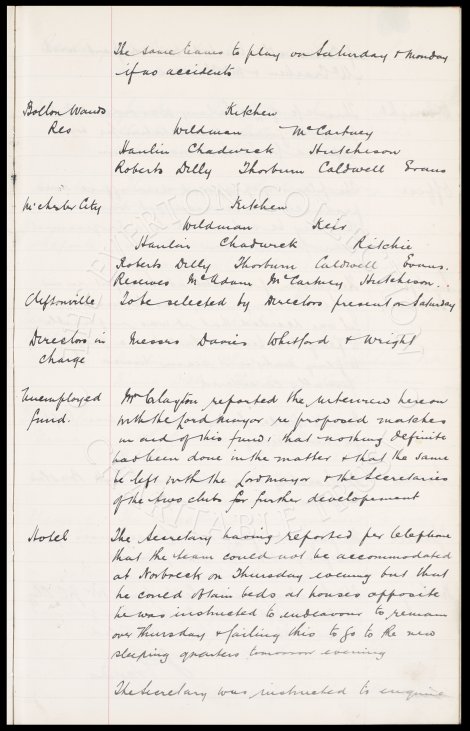 The same teams to play on Saturday & Monday
if no accidents
Bolton Wands Kitchen
Res Wildman McCartney
Hanlin Chadwick Hutchison
Roberts Dilly Thorburn Caldwell Evans
M'chester City Kitchen
Wildman Keir
Hanlin Chadwick Ritchie
Roberts Dilly Thorburn Caldwell Evans.
Reserves McAdam McCartney Hutchison.
Cliftonville To be selected by Directors present on Saturday
Directors in Messrs Davies Whitford & Wright
charge
Unemployed Mr Clayton reported the interview hereon
Fund. with the Lord Mayor re proposed matches
in aid of this fund, that nothing definite
had been done in the matter & that the same
be left with the Lord Mayor & the Secretaries
of the two clubs for further developement
Hotel The Secretary having reported per telephone
that the team could not be accommodated
at Norbreck on Thursday evening but that
he could obtain beds at houses opposite
he was instructed to endeavour to remain
over Thursday & failing this to go to the new
sleeping quarters tomorrow evening
The Secretary was instructed to enquire